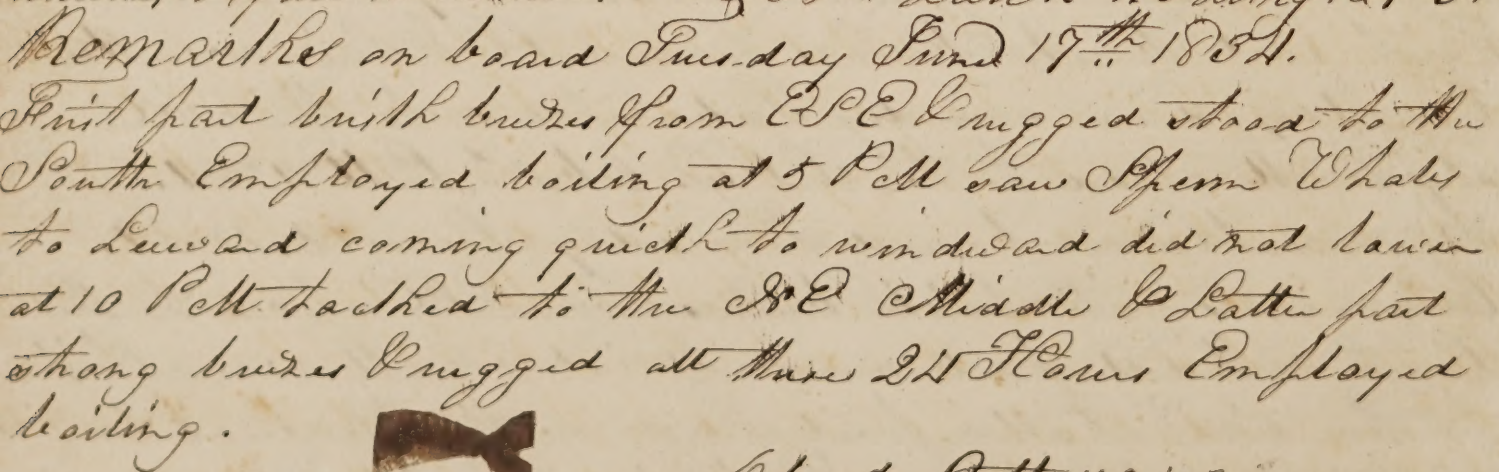 Remarks on board Tuesday June 17th 1834.
First part brisk breezes from ESE & rugged stood to the
South Employed boiling at 5 PM saw Sperm Whales
to Leeward coming quick to windward did not lower
at 10 PM tacked to the NE Middle & Latter part
strong breezes & rugged all these 24 Hours Employed
boiling.